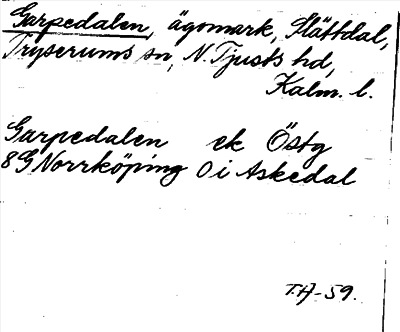 Garpedalen, ägomark, Slättdal,
Tryserums sn, N. Tjusts hd,
Kalm. l.
Garpedalen ek Östg
8G Norrköping 0 i Askedal
T.H-59.